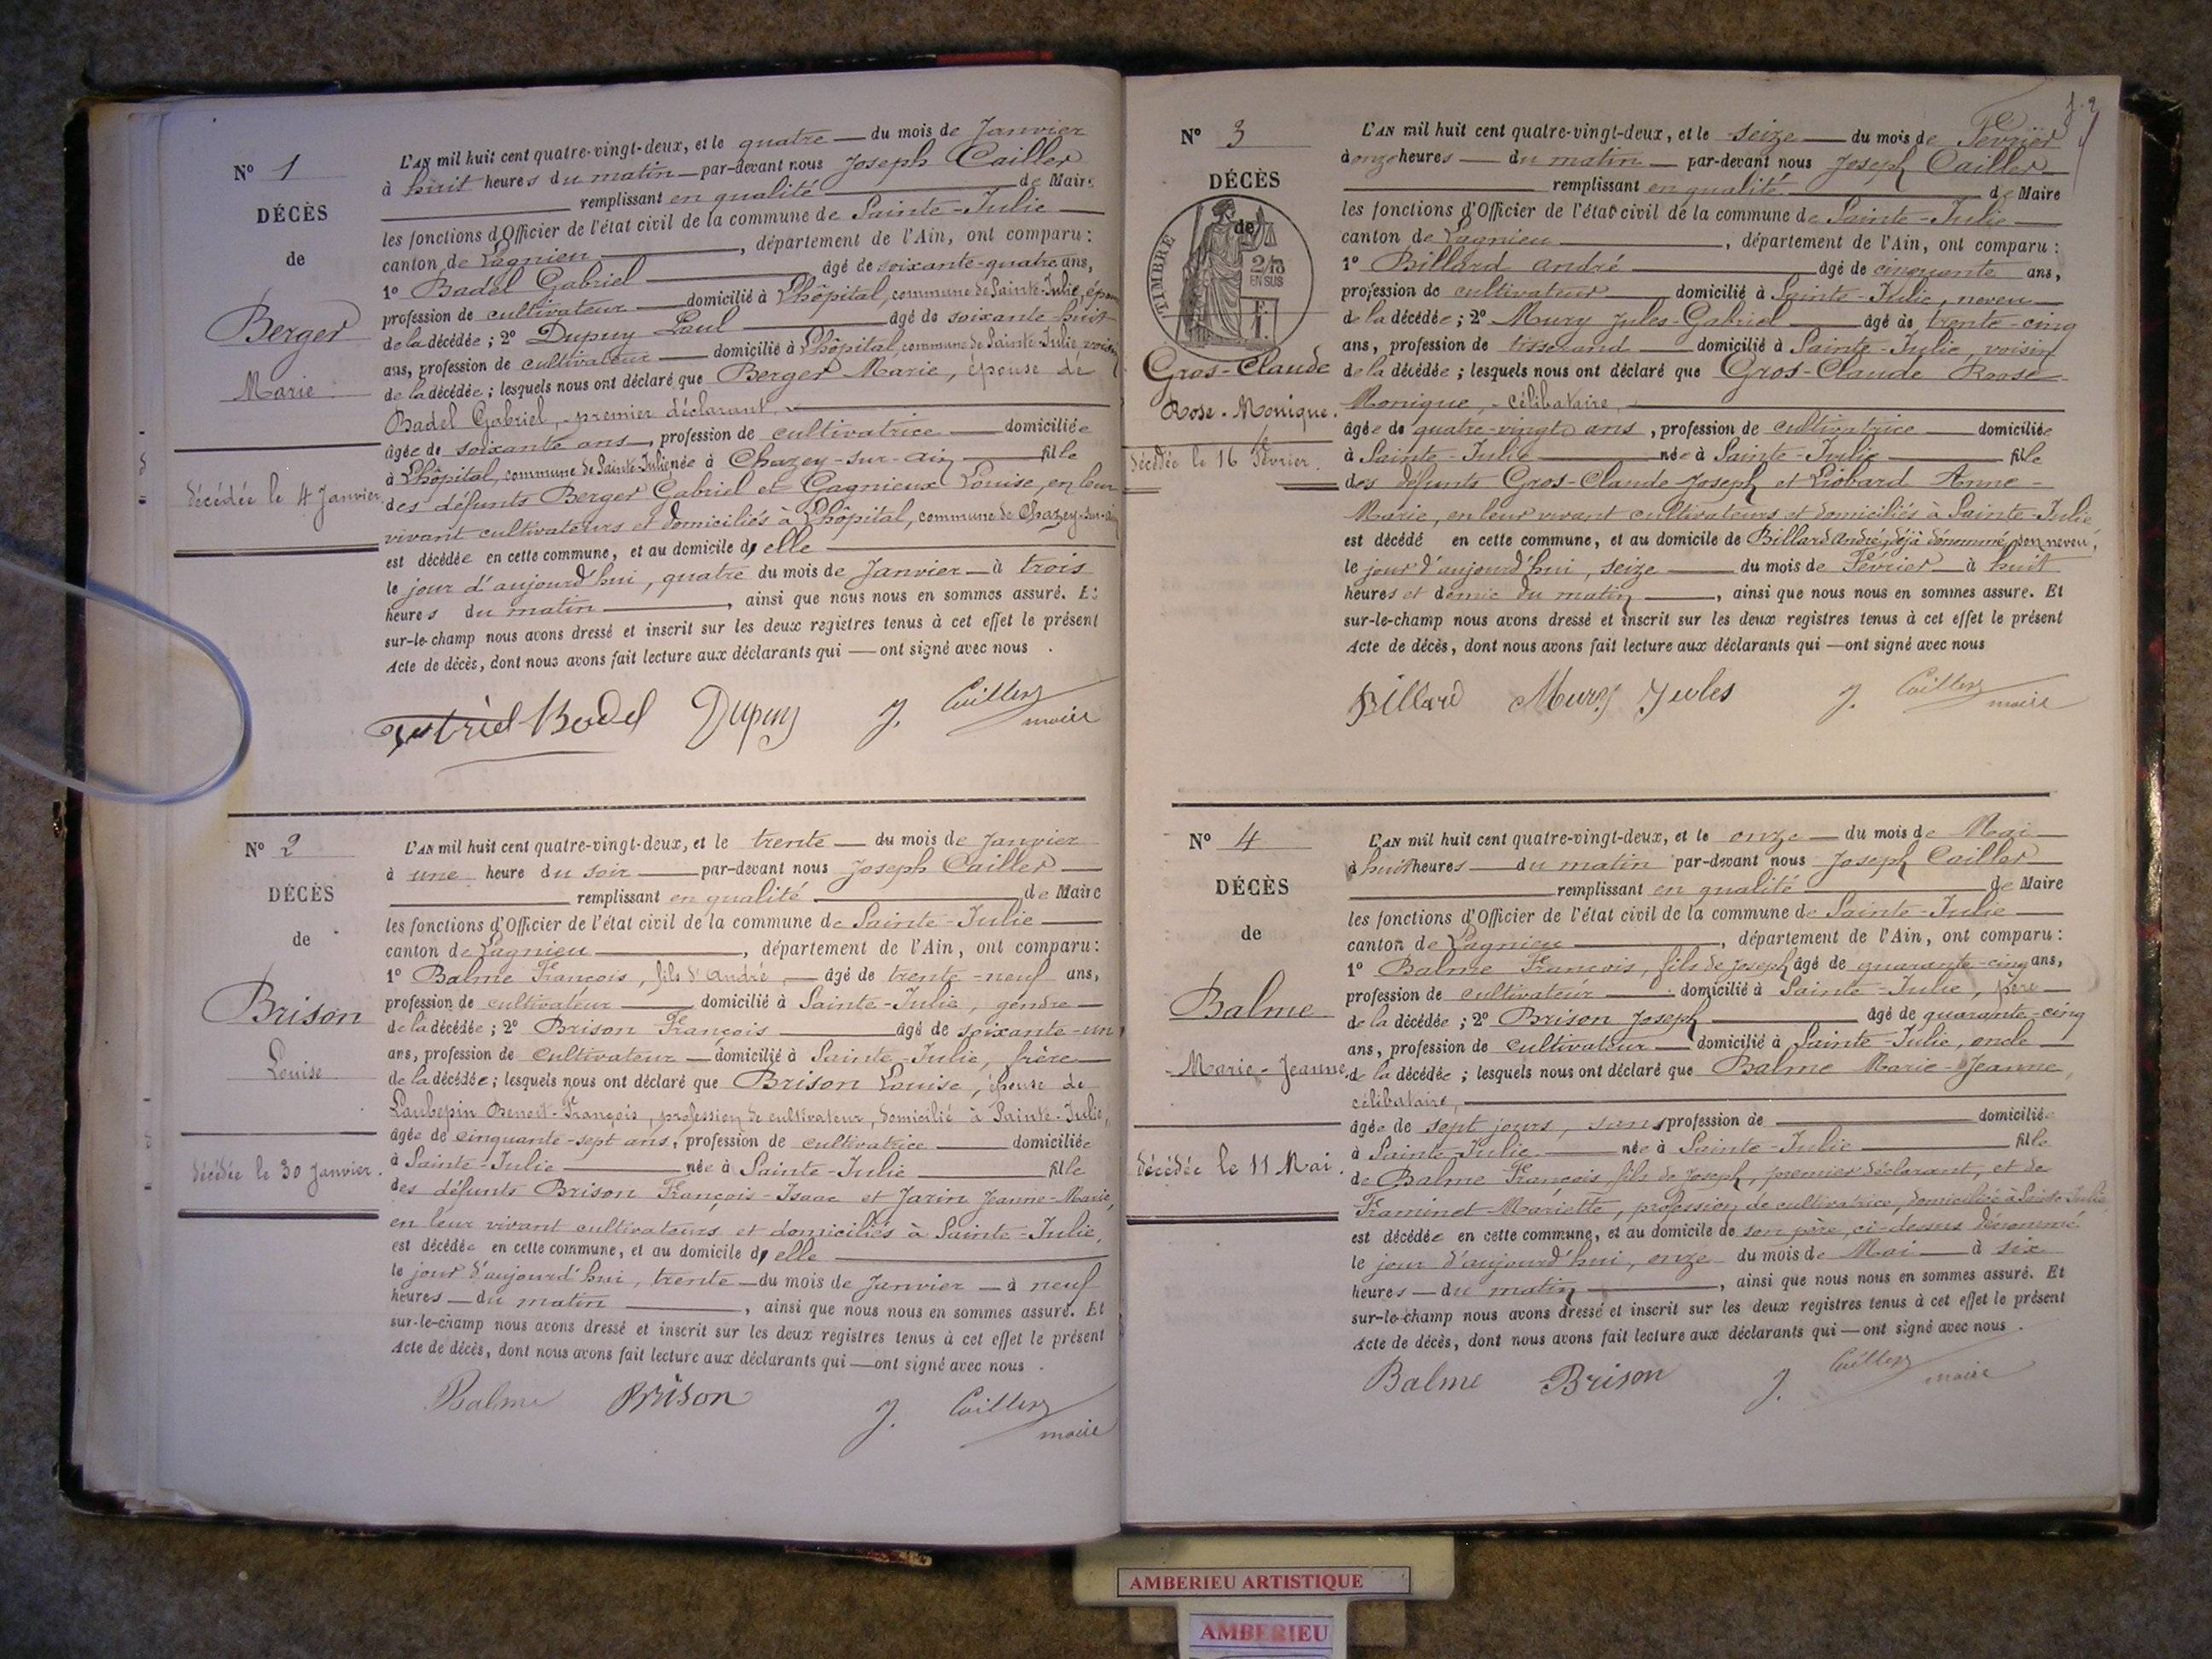 N° 1
DÉCÈS
de
Berger
Marie
décédée le 4 Janvier
L'AN mil huit cent quatre-vingt-deux, et le quatre du mois de Janvier
à huit heures du matin par-devant nous Joseph Cailler
remplissant en qualité de Maire
les fonctions d'Officier de l'état civil de la commune de Sainte-Julie
canton de Lagnieu, département de l'Ain, ont comparu :
1° Badel Gabriel âgé de soixante-quatre ans,
profession de cultivateur domicilié à Lhôpital, commune de Sainte-Julie, époux
de la décédée ; 2° Dupuy Paul âgé de soixante-huit
ans, profession de cultivateur domicilié à Lhôpital, commune de Sainte-Julie, voisin
de la décédée ; lesquels nous ont déclaré que Berger Marie, épouse de
Badel Gabriel, premier déclarant,
âgée de soixante ans, profession de cultivatrice domiciliée
à Lhôpital, commune de Sainte-Julie née à Chazey-sur-Ain fille
des défunts Berger Gabriel et Gagnieux Louise, en leur
vivant cultivateurs et domiciliés à Lhôpital, commune de Chazey-sur-Ain
est décédée en cette commune, et au domicile d'elle
le jour d'aujourd'hui, quatre du mois de Janvier à trois
heures du matin, ainsi que nous nous en sommes assuré. Et
sur-le-champ nous avons dressé et inscrit sur les deux registres tenus à cet effet le présent
Acte de décès, dont nous avons fait lecture aux déclarants qui ont signé avec nous.
Badel Dupuy J. Cailler
maire
N° 2
DÉCÈS
de
Brison
Louise
décédée le 30 Janvier.
L'AN mil huit cent quatre-vingt-deux, et le trente du mois de Janvier
à une heure du soir par-devant nous Joseph Cailler
remplissant en qualité de Maire
les fonctions d'Officier de l'état civil de la commune de Sainte-Julie
canton de Lagnieu, département de l'Ain, ont comparu :
1° Balme François, fils d'André, âgé de trente-neuf ans,
profession de cultivateur domicilié à Sainte-Julie, gendre
de la décédée ; 2° Brison François âgé de soixante-un
ans, profession de cultivateur domicilié à Sainte-Julie, frère
de la décédée ; lesquels nous ont déclaré que Brison Louise, épouse de
Laubepin Benoit-François, profession de cultivateur, domicilié à Sainte-Julie,
âgée de cinquante-sept ans, profession de cultivatrice domiciliée
à Sainte-Julie née à Sainte-Julie fille
des défunts Brison François-Isaac et Jarin Jeanne-Marie,
en leur vivant cultivateurs et domiciliés à Sainte-Julie,
est décédée en cette commune, et au domicile d'elle
le jour d'aujourd'hui, trente du mois de Janvier à neuf
heures du matin, ainsi que nous nous en sommes assuré. Et
sur-le-champ nous avons dressé et inscrit sur les deux registres tenus à cet effet le présent
Acte de décès, dont nous avons fait lecture aux déclarants qui ont signé avec nous.
Balme Brison J. Cailler
maire
N° 3
DÉCÈS
de
TIMBRE
2/10
EN SUS
Gros-Claude
Rose-Monique.
décédée le 16 Février.
L'AN mil huit cent quatre-vingt-deux, et le seize du mois de Février
à onze heures du matin par-devant nous Joseph Cailler
remplissant en qualité de Maire
les fonctions d'Officier de l'état civil de la commune de Sainte-Julie
canton de Lagnieu, département de l'Ain, ont comparu :
1° Billard André âgé de cinquante ans,
profession de cultivateur domicilié à Sainte-Julie, neveu
de la décédée ; 2° Mury Jules-Gabriel âgé de trente-cinq
ans, profession de tisserand domicilié à Sainte-Julie, voisin
de la décédée ; lesquels nous ont déclaré que Gros-Claude Roose-
Monique, célibataire,
âgée de quatre-vingts ans, profession de cultivatrice domiciliée
à Sainte-Julie née à Sainte-Julie fille
des défunts Gros-Claude Joseph et Liobard Anne-
Marie, en leur vivant cultivateurs et domiciliés à Sainte-Julie
est décédé en cette commune, et au domicile de Billard André, déjà dénommé, son neveu,
le jour d'aujourd'hui, seize du mois de Février à huit
heures et demie du matin, ainsi que nous nous en sommes assuré. Et
sur-le-champ nous avons dressé et inscrit sur les deux registres tenus à cet effet le présent
Acte de décès, dont nous avons fait lecture aux déclarants qui ont signé avec nous
Billard Mury Jules J. Cailler
maire
N° 4
DÉCÈS
de
Balme
Marie-Jeanne
décédée le 11 Mai.
L'AN mil huit cent quatre-vingt-deux, et le onze du mois de Mai
à huit heures du matin par-devant nous Joseph Cailler
remplissant en qualité de Maire
les fonctions d'Officier de l'état civil de la commune de Sainte-Julie
canton de Lagnieu, département de l'Ain, ont comparu :
1° Balme François, fils de Joseph âgé de quarante-cinq ans,
profession de cultivateur domicilié à Sainte-Julie, père
de la décédée ; 2° Brison Joseph âgé de quarante-cinq
ans, profession de cultivateur domicilié à Sainte-Julie, oncle
de la décédée ; lesquels nous ont déclaré que Balme Marie-Jeanne,
célibataire,
âgée de sept jours, sans profession de domiciliée
à Sainte-Julie née à Sainte-Julie fille
de Balme François, fils de Joseph, premier déclarant, et de
Framinet Mariette, profession de cultivatrice, domiciliée à Sainte-Julie
est décédée en cette commune, et au domicile de son père, ci-dessus dénommé
le jour d'aujourd'hui, onze du mois de Mai à six
heures du matin, ainsi que nous nous en sommes assuré. Et
sur-le-champ nous avons dressé et inscrit sur les deux registres tenus à cet effet le présent
Acte de décès, dont nous avons fait lecture aux déclarants qui ont signé avec nous.
Balme Brison J. Cailler
maire
AMBERIEU ARTISTIQUE
AMBERIEU